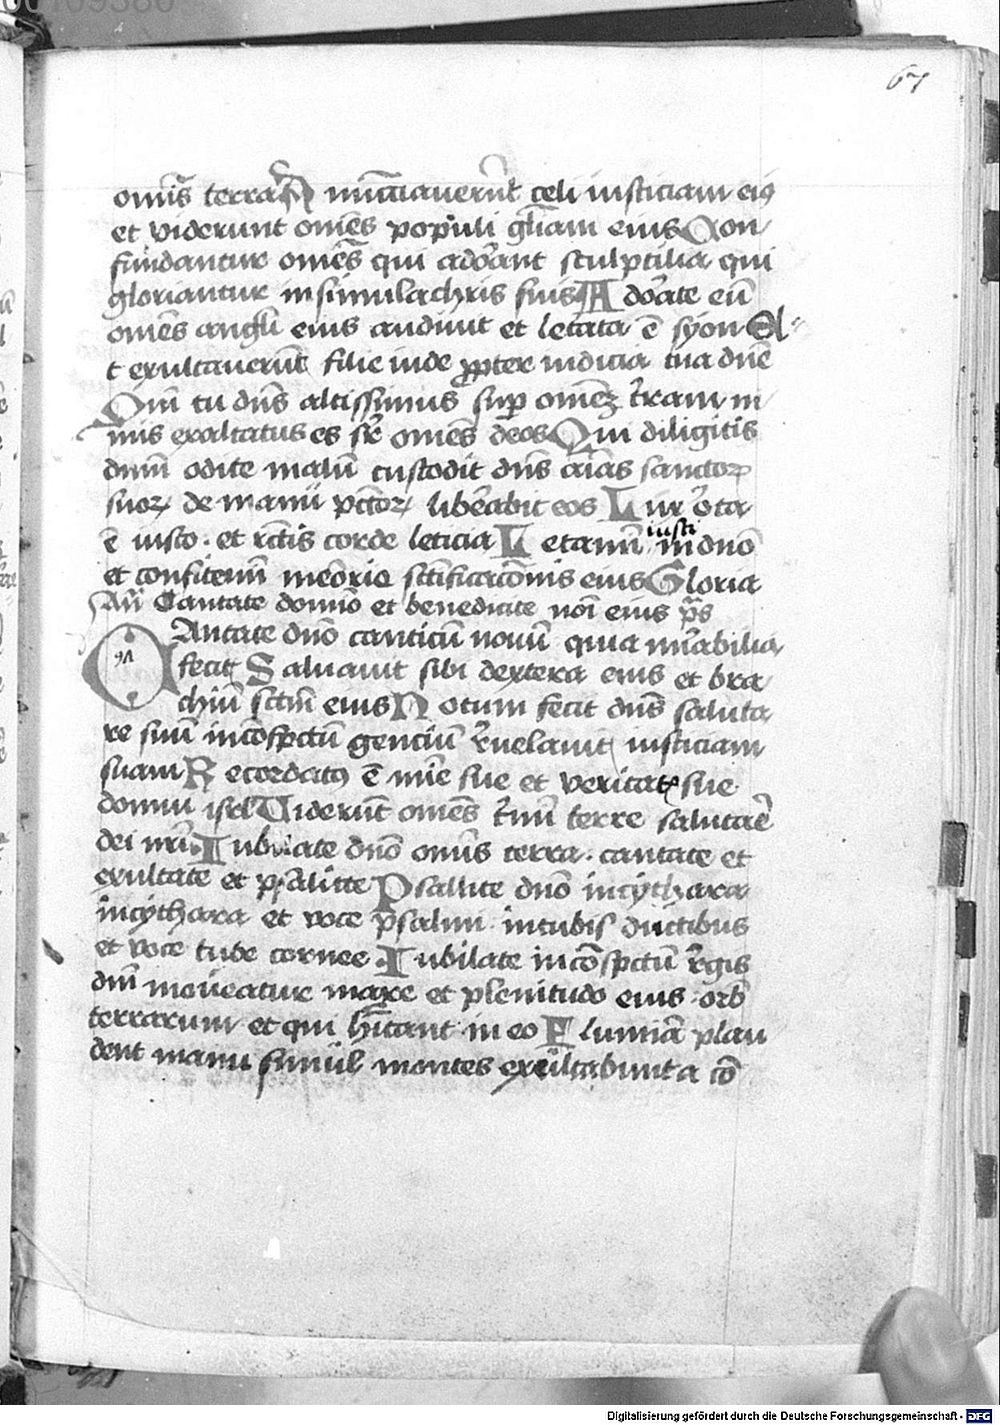 67
omnis terra A nūctiaverūt celi iusticiam eiꝰ
et viderunt omēs populi gl̄iam eius Con
fundantur omēs qui adorant sculptilia qui
gloriantur in simulachris suis A dorate eū
omēs angeli eius audivit et letata ē syon Et
t exultaverūt filie iude ꝓpter iudicia tua dn̄e
Qm̄ tu dn̄s altissimus sup omēꝫ terram ni
mis exaltatus es sup omēs deos Qui diligitis
dn̄m odite malū custodit dn̄s aīas sanctoꝝ
suoꝝ de manu pctōꝝ liberabit eos L ux orta
ē iusto . et rectis corde leticia L etamī iusti in dn̄o
et confitemī memorie sctificacōnis eius Gloria
An̄ Cantate domīo et benedicite noī eius ps
Cantate dn̄o canticū novū quia mirabilia
fecit S alvavit sibi dextera eius et bra
chiū sctm̄ eius N otum fecit dn̄s saluta
re suū in cōspctū genciū revelavit iusticiam
suam R ecordatꝰ ē mīe sue et veritatꝭ sue
domui isrl V iderūt omēs tmī terre salutare
dei nr̄i . I ubilate dn̄o omīs terra . cantate et
exultate et psallite P sallite dn̄o in cythara
in cythara et voce psalmi in tubis ductibus
et voce tube cornee . I ubilate in cōspctū regis
dn̄i moveatur mare et plenitudo eius . orbis
terrarum et qui hītant in eo F lumīa plau
dent manu simul montes exultabunt a cō
Digitalisierung gefördert durch die Deutsche Forschungsgemeinschaft - DFG